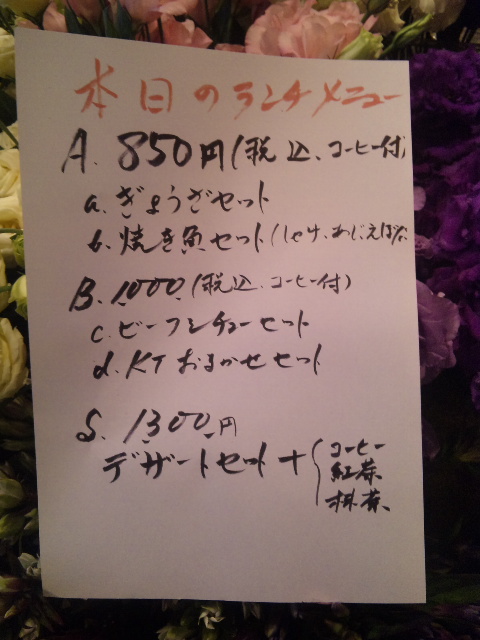 本日のランチメニュー
A. 850円(税込、コーヒー付)
a. ぎょうざセット
b. 焼き魚セット(しゃけ、あじえぼだ
B. 1,000(税込、コーヒー付)
c. ビーフシチューセット
d. KTおまかせセット
S. 1300円
デザートセット + {コーヒー
紅茶
抹茶